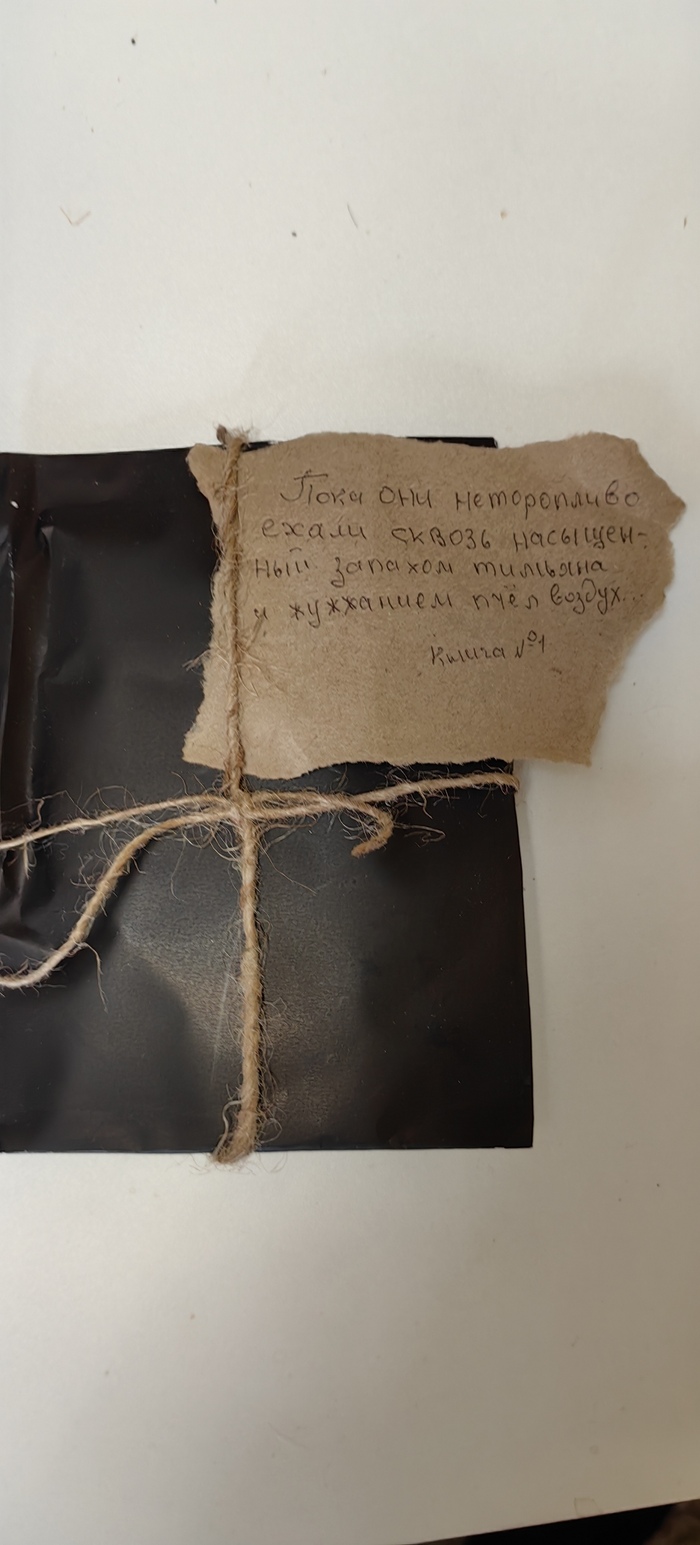 Пока они неторопливо
ехали сквозь насыщен-
ный запахом тимьяна
и жужжанием пчёл воздух...
Книга №1